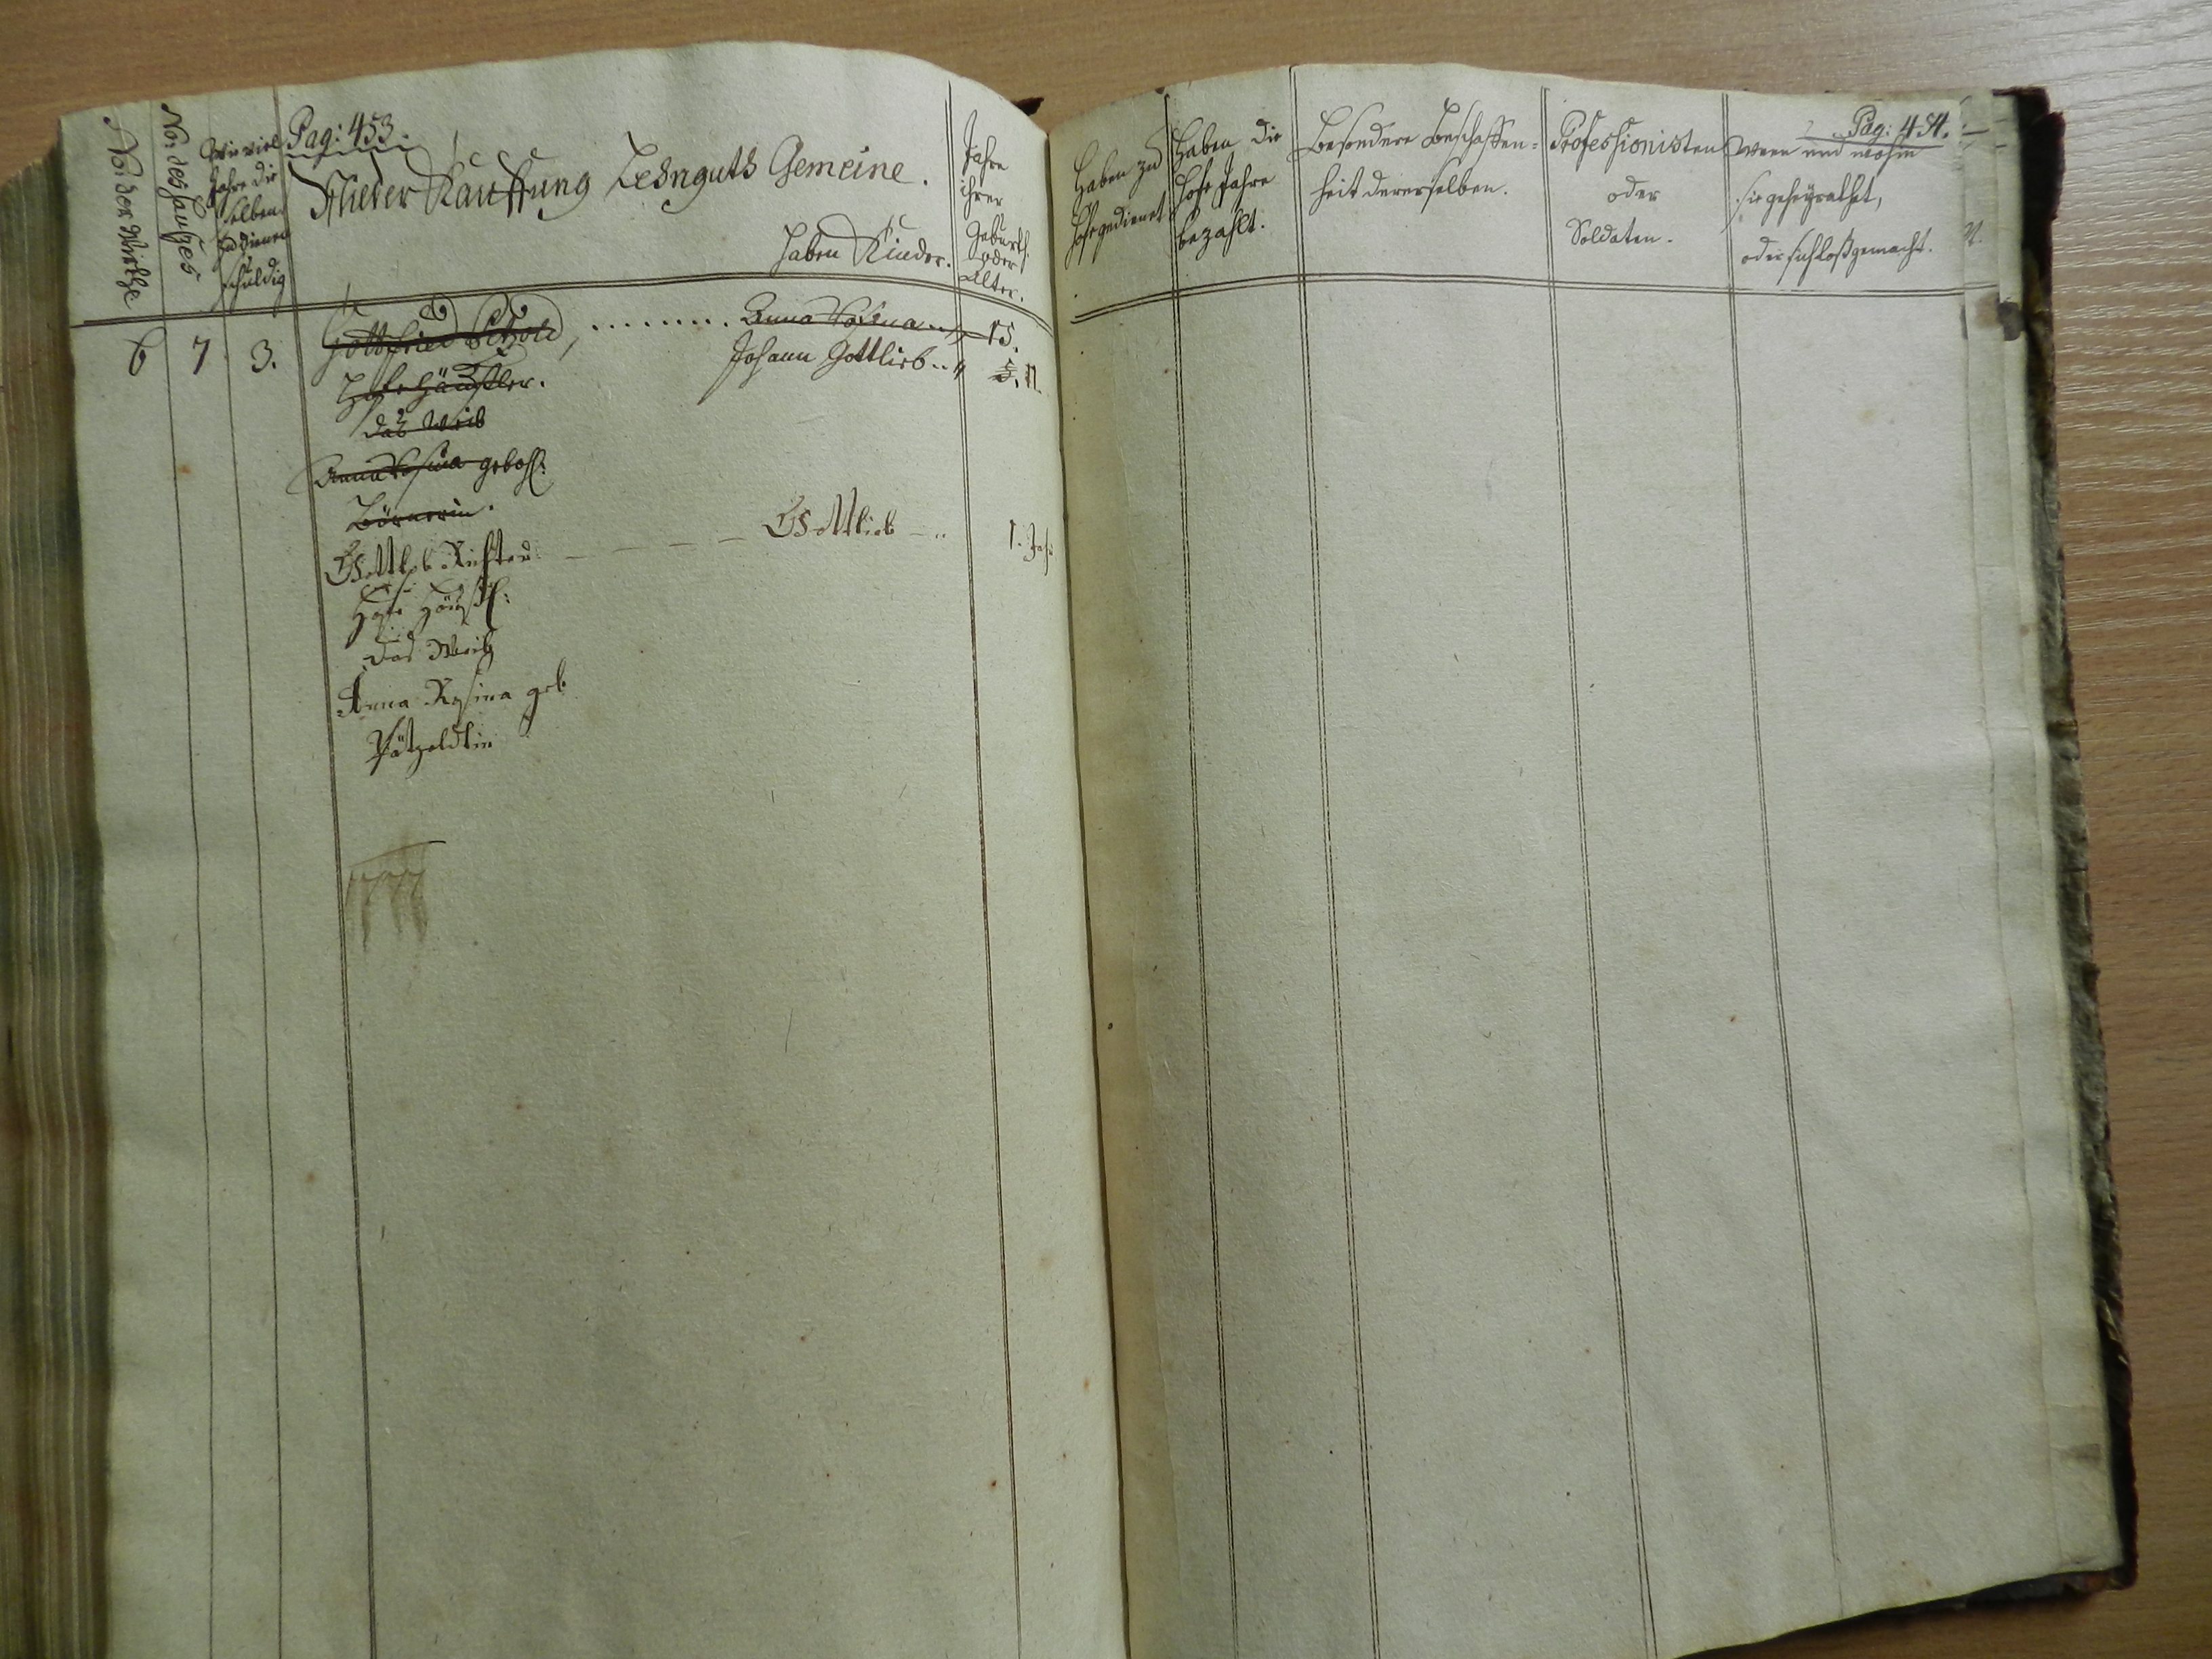 No: der Wirthe
No: des Hauses
Wie viel
Jahre die
selben
zu dienen
schuldig
Pag: 453.
Nieder Kauffung Lehnguts Gemeine.
haben Kinder.
Jahre
ihrer
Geburth
oder
Alter.
6 7 3. Gottfried Scholz, Anna Rosina 15.
Hofehäußler. Johann Gottlieb 11.
das Weib
Anna Rosina gebohr:
Börnerin.
Gottlob Richter Gottlieb 1. Jahr
Hofe Häußl:
das Weib
Anna Rosina geb
Pätzoldtin
Haben zu
Hofe gedienet
Haben die
Hofe Jahre
bezahlt.
Besondere Beschaffen=
heit dererselben.
Professionisten
oder
Soldaten.
Pag: 454.
Wenn und wohin
sie geheyrathet,
oder sich loß gemacht.